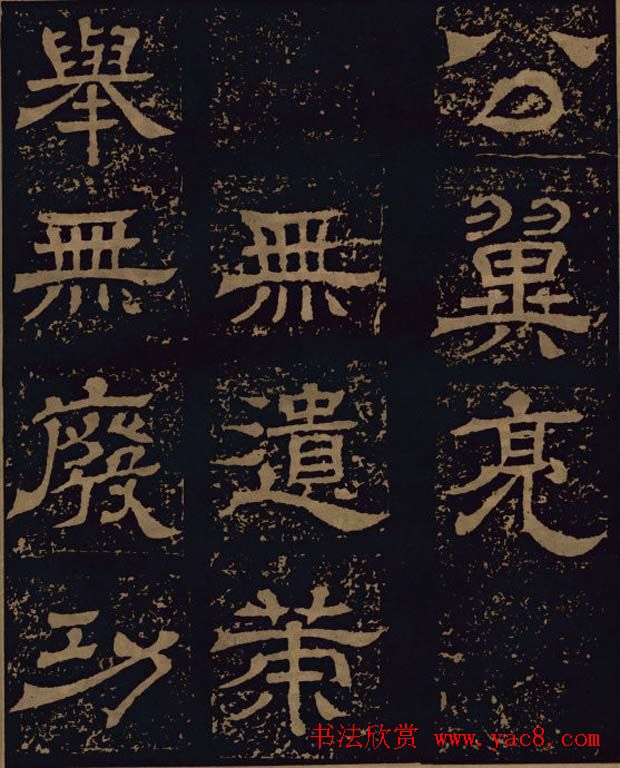 公翼亮
無遺策
舉無廢功
书法欣赏 www.yac8.com